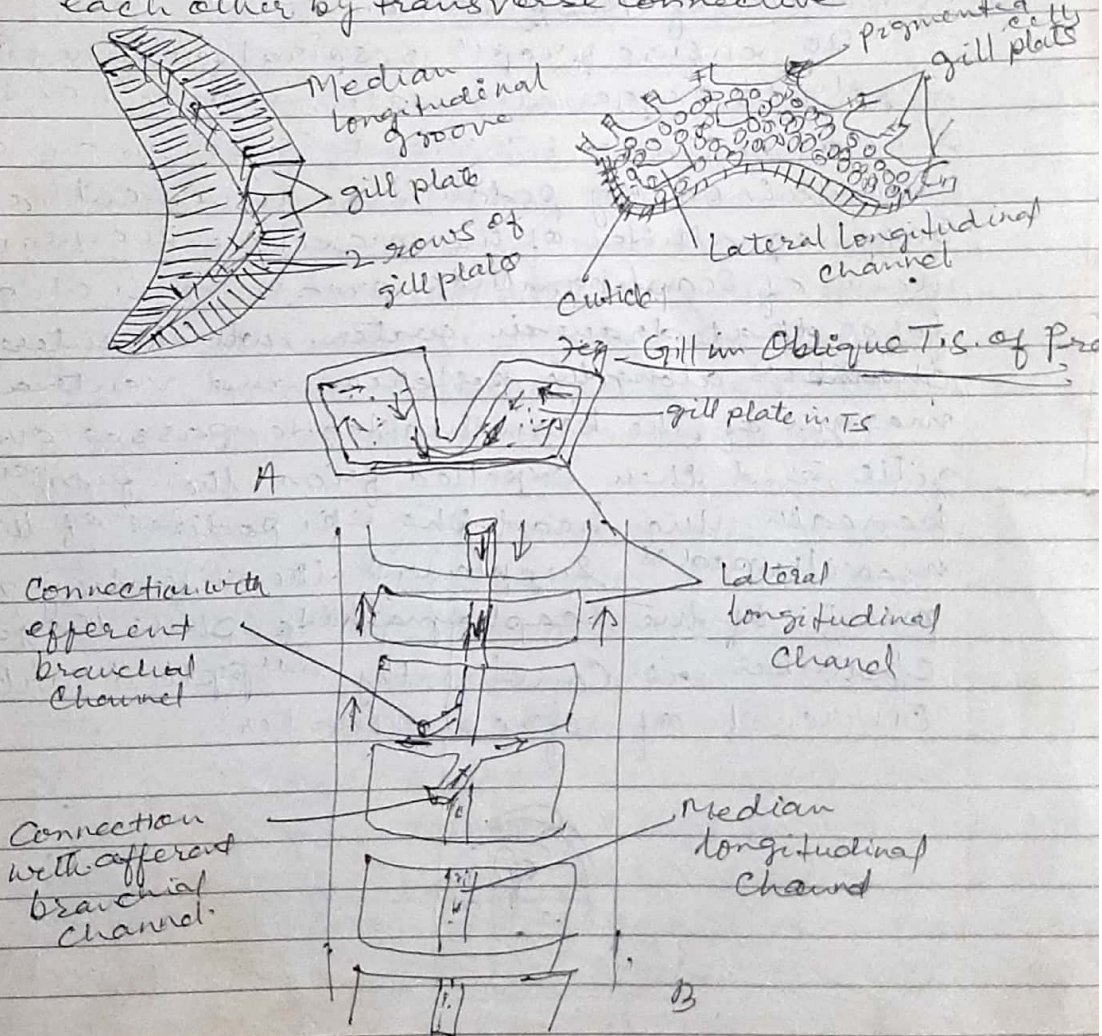 each other by transverse connective
Median
longitudinal
groove
gill plate
2 rows of
gill plats
pigmented
cell
gill plats
Lateral longitudinal
channel
Cuticle
Gill in Oblique T.S. of Pra
gill plate in TS
A
Connection with
efferent
branchial
Channel
Lateral
longitudinal
Chanel
Connection
with afferent
branchial
Channel.
Median
longitudinal
Channel
B